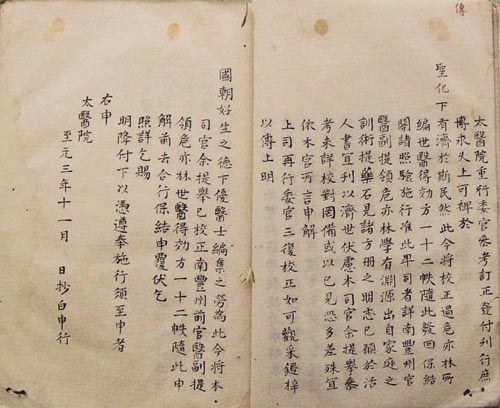 傳
太醫院重行委官叅考訂正發付刋行庶
博求头上可裨於
聖化下有濟於斯民然此今將校正過危亦林所
編世醫得効方一十二帙隨此發回保結
開諸照驗施行准此卑司者詳南豐州官
醫副提領危亦林學有淵源出自家庭之
訓術提藥石見諸方冊之明志已頋於活
人書宜刋以濟世伏慮本司官余提舉叅
考未詳校對罔備或以已見恐多差殊宜
依本官所言申解
上司再行委官三復校正如可觀采鋟梓
以傳上明
國朝好生之德下優醫士編集之勞為此今將本
司官余提舉已校正南豐州前官醫副提
領危亦林世醫得効方一十二帙隨此申
解前去合行保結申覆伏乞
照詳乞賜
明降付下以憑遵奉施行須至申者
右申
太醫院
至元三年十一月 日抄白申行